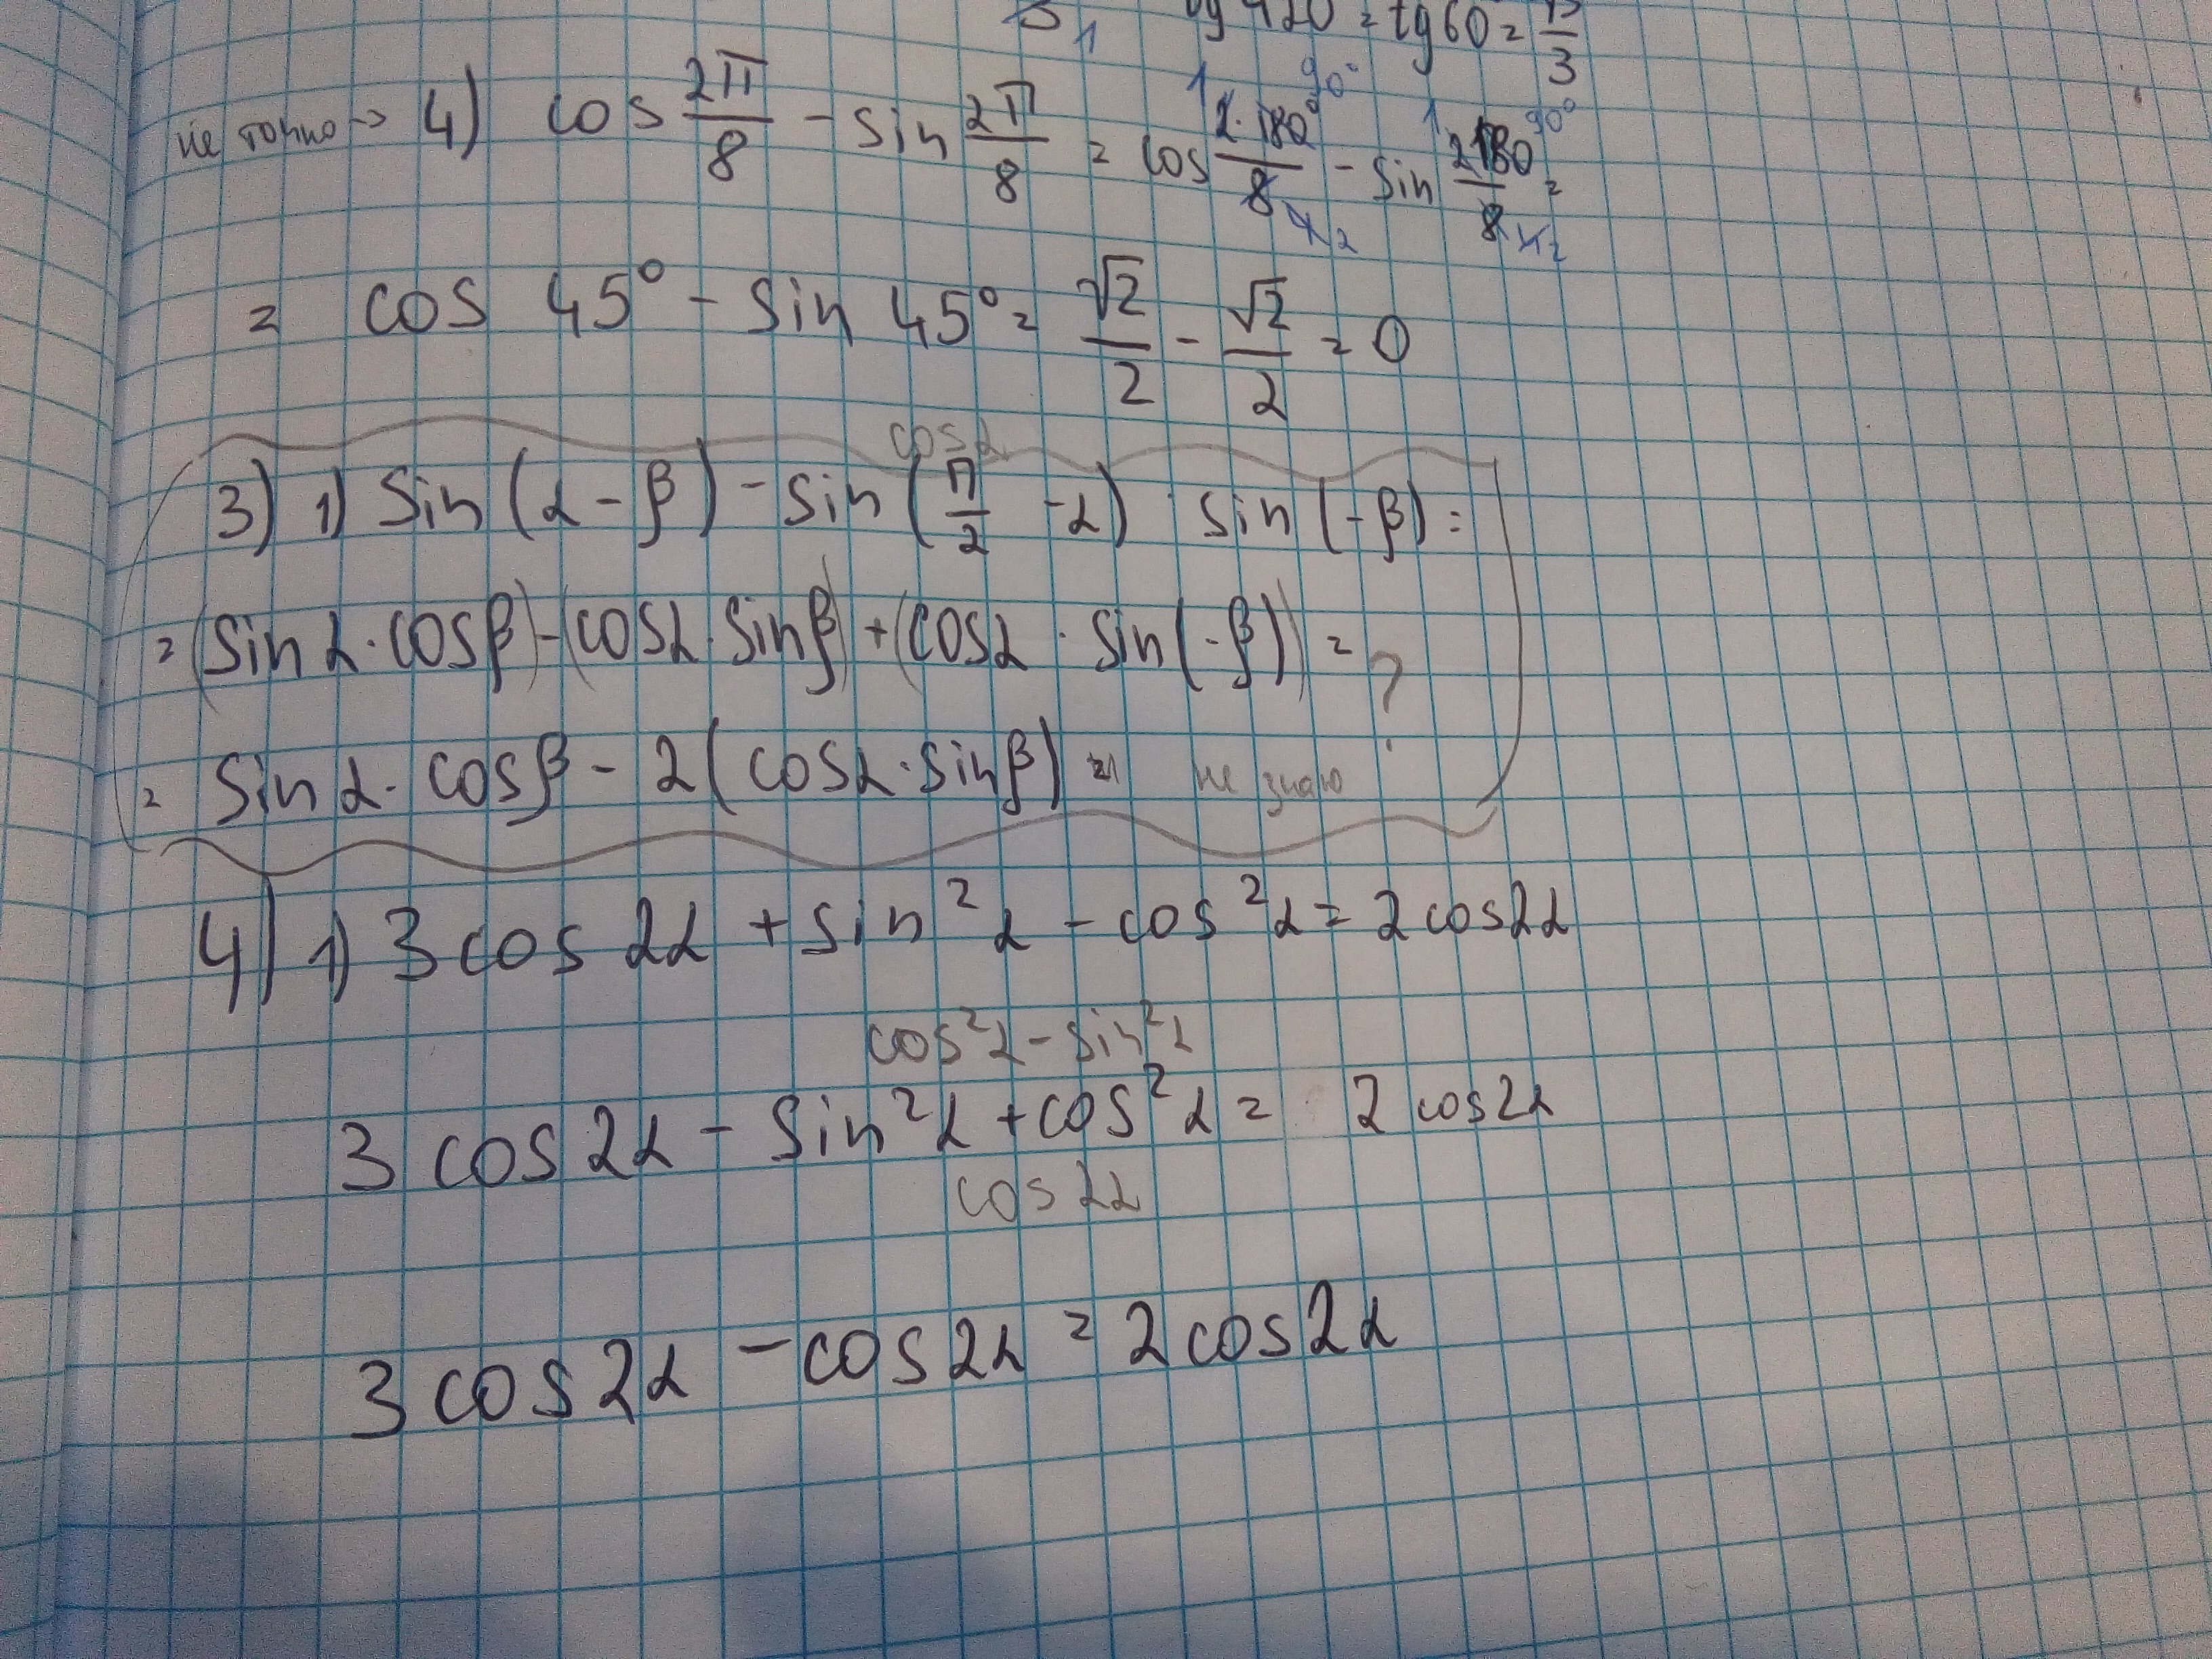 tg 420 = tg 60 = 3
не точно → 4) cos 2π/8 - sin 2π/8 = cos 2·180°/8 - sin 2180/8 =
= cos 45° - sin 45° = √2/2 - √2/2 = 0
cosα
3) 1) sin(α - β) - sin(π/2 - α) · sin(-β) =
= (sin α · cos β) - (cos α · sin β) + (cos α · sin(-β)) = ?
= sin α · cos β - 2(cos α · sin β) = не знаю
4) 1) 3 cos 2α + sin²α - cos²α = 2 cos 2α
cos²α - sin²α
3 cos 2α - sin²α + cos²α = 2 cos 2α
cos 2α
3 cos 2α - cos 2α = 2 cos 2α